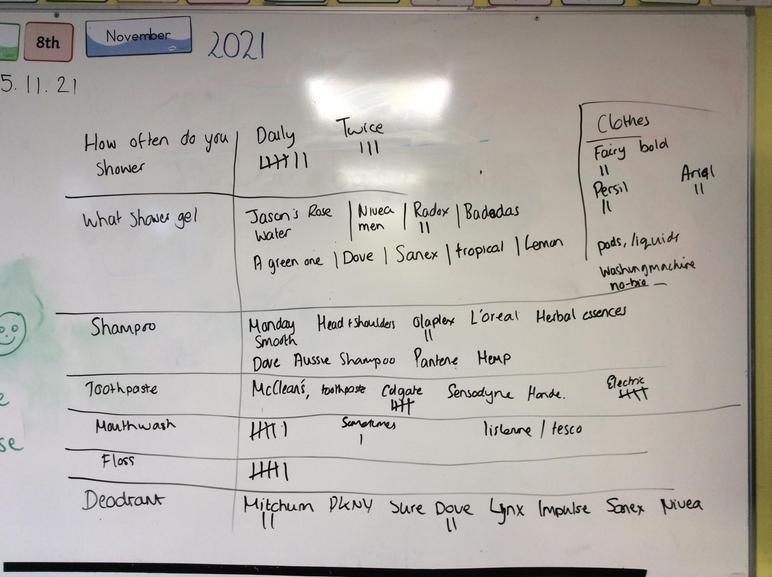 8th November 2021
5.11.21
How often do you Shower
Daily
Twice
What Shower gel
Jason's Rose Water | Nivea men | Radox | Badedas
A green one | Dove | Sanex | tropical | Lemon
Shampoo
Monday Smooth Head & shoulders Olaplex L'oreal Herbal essences
Dove Aussie Shampoo Pantene Hemp
Toothpaste
McClean's, toothpaste Colgate Sensodyne Electric
Mouthwash
Sometimes
/ tesco
Floss
Deodrant
Mitchum DKNY Sure Dove Lynx Impulse Sanex Nivea
Clothes
Fairy bold
Persil
Arial
pods, liquids
Washing machine
se